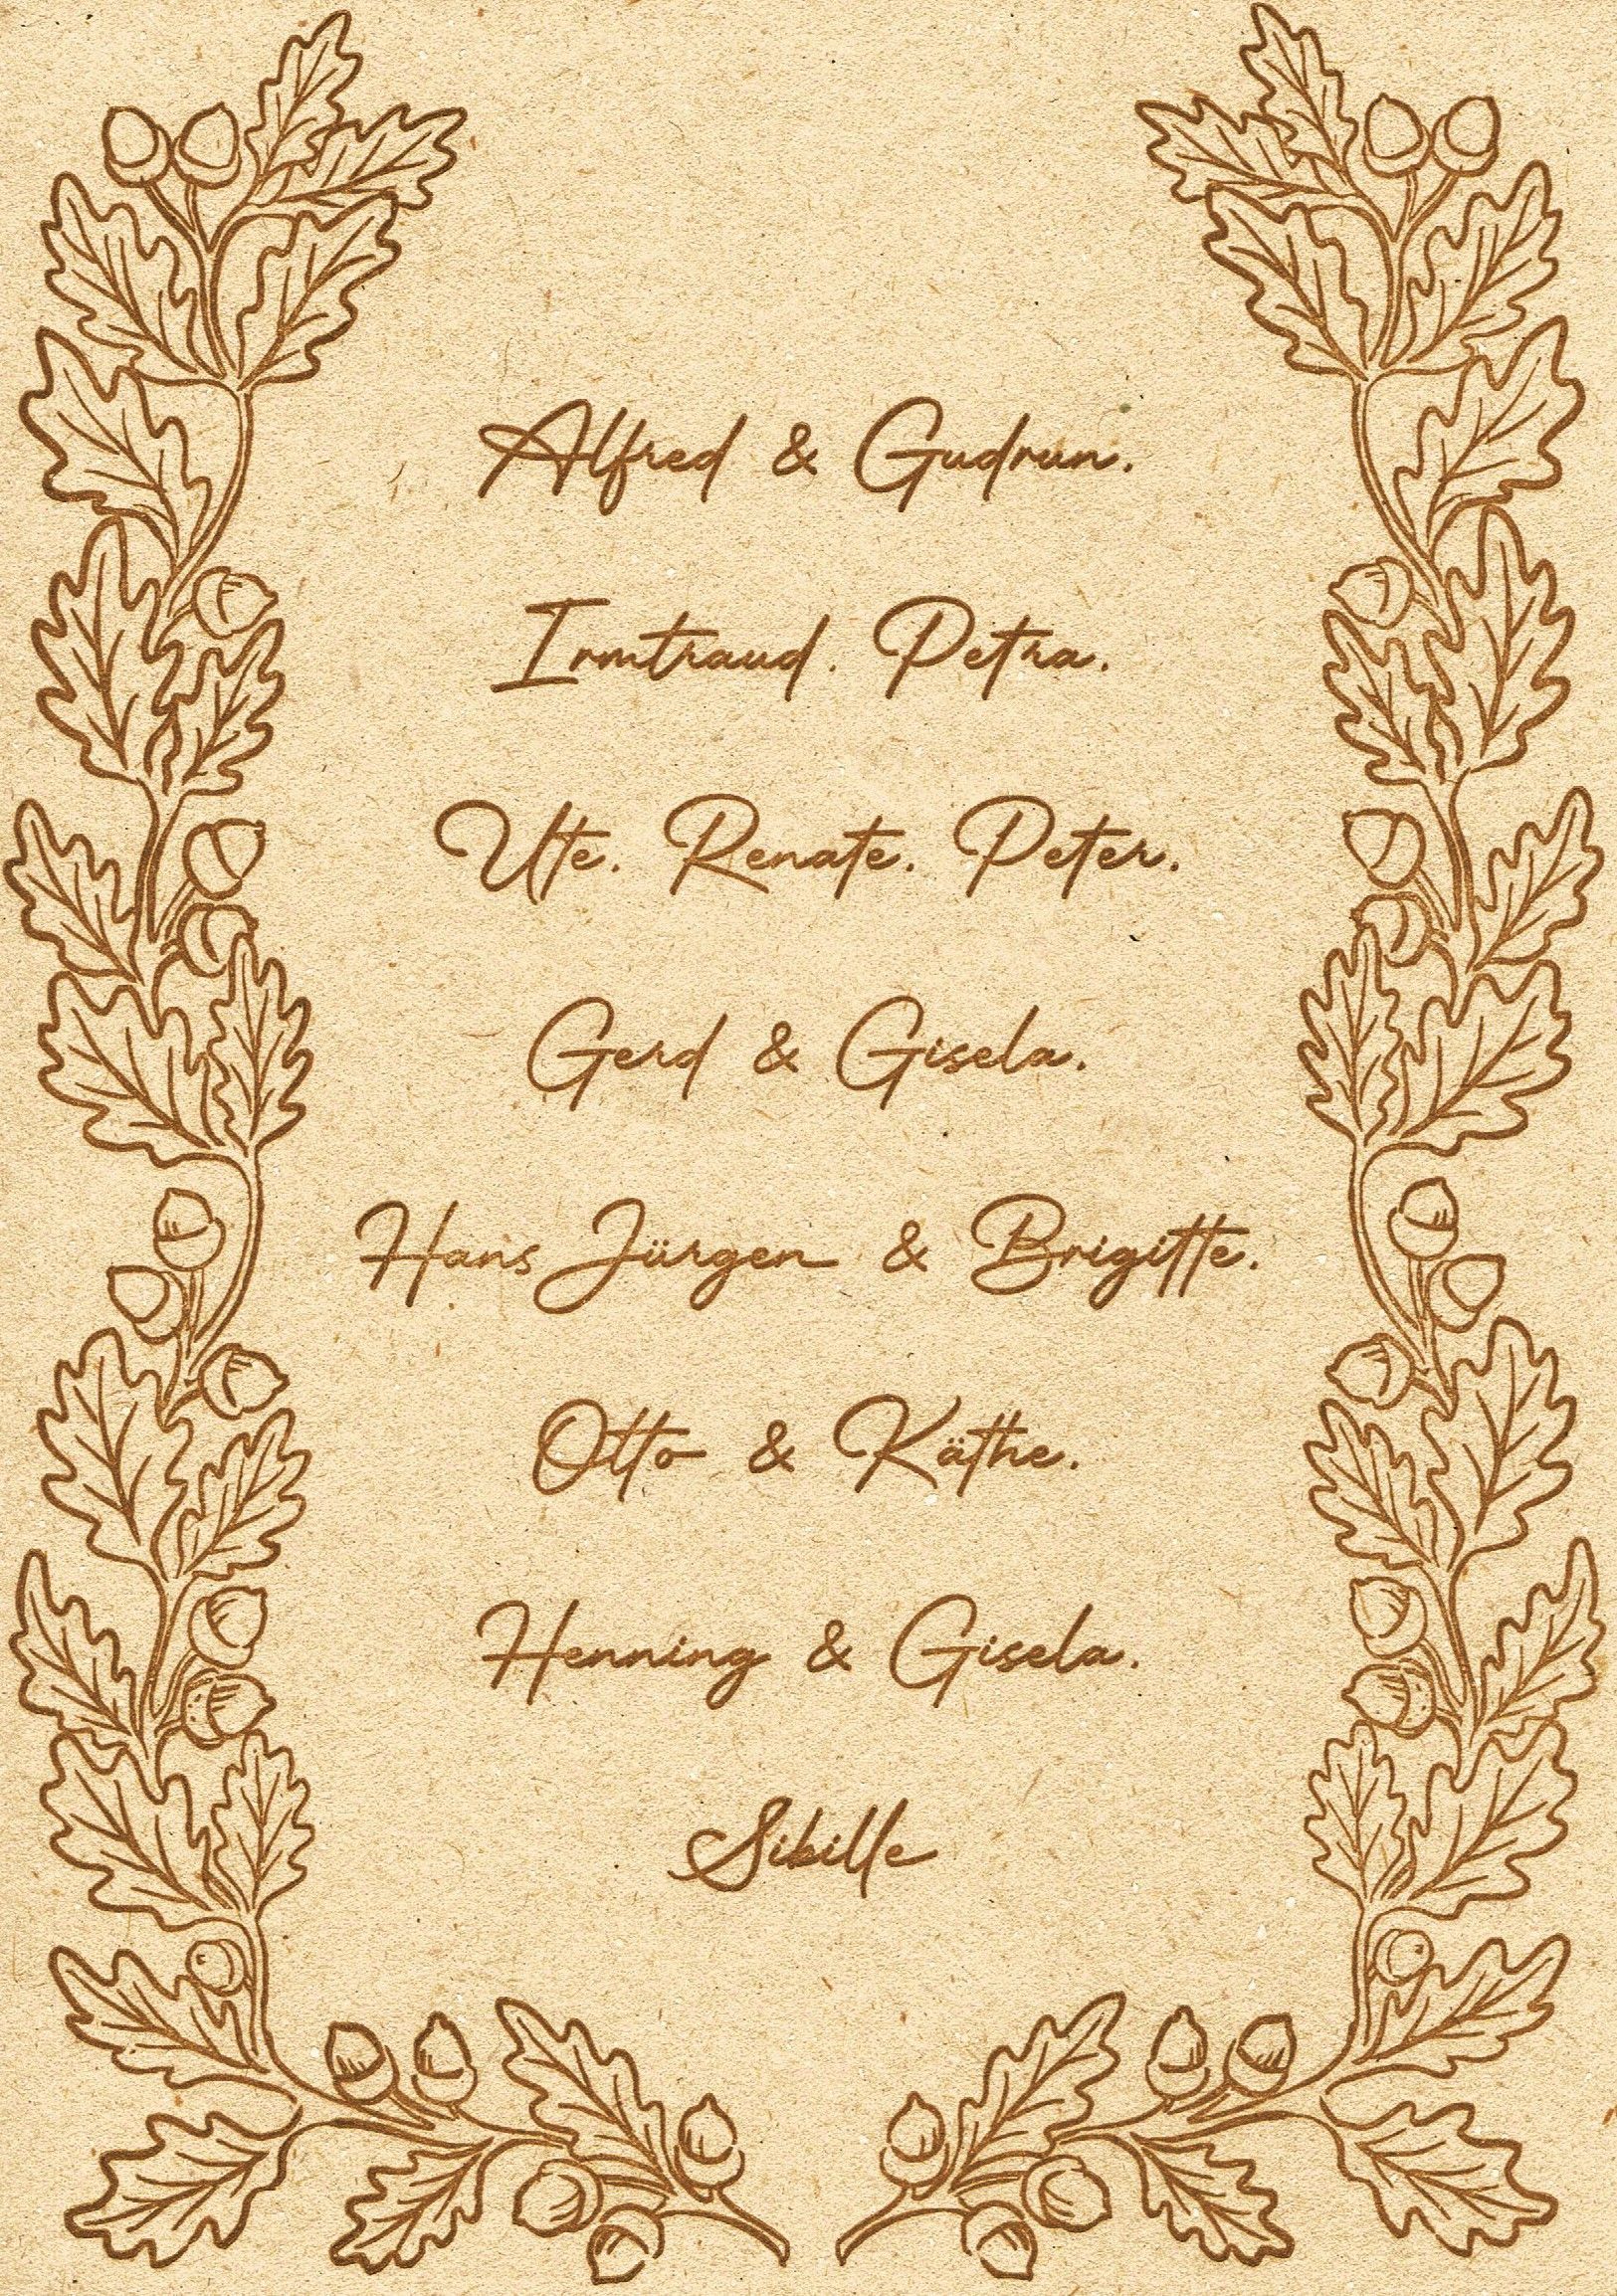 Alfred & Gudrun.
Irmtraud. Petra.
Ute. Renate. Peter.
Gerd & Gisela.
Hans Jürgen & Brigitte.
Otto & Käthe.
Henning & Gisela.
Sibille